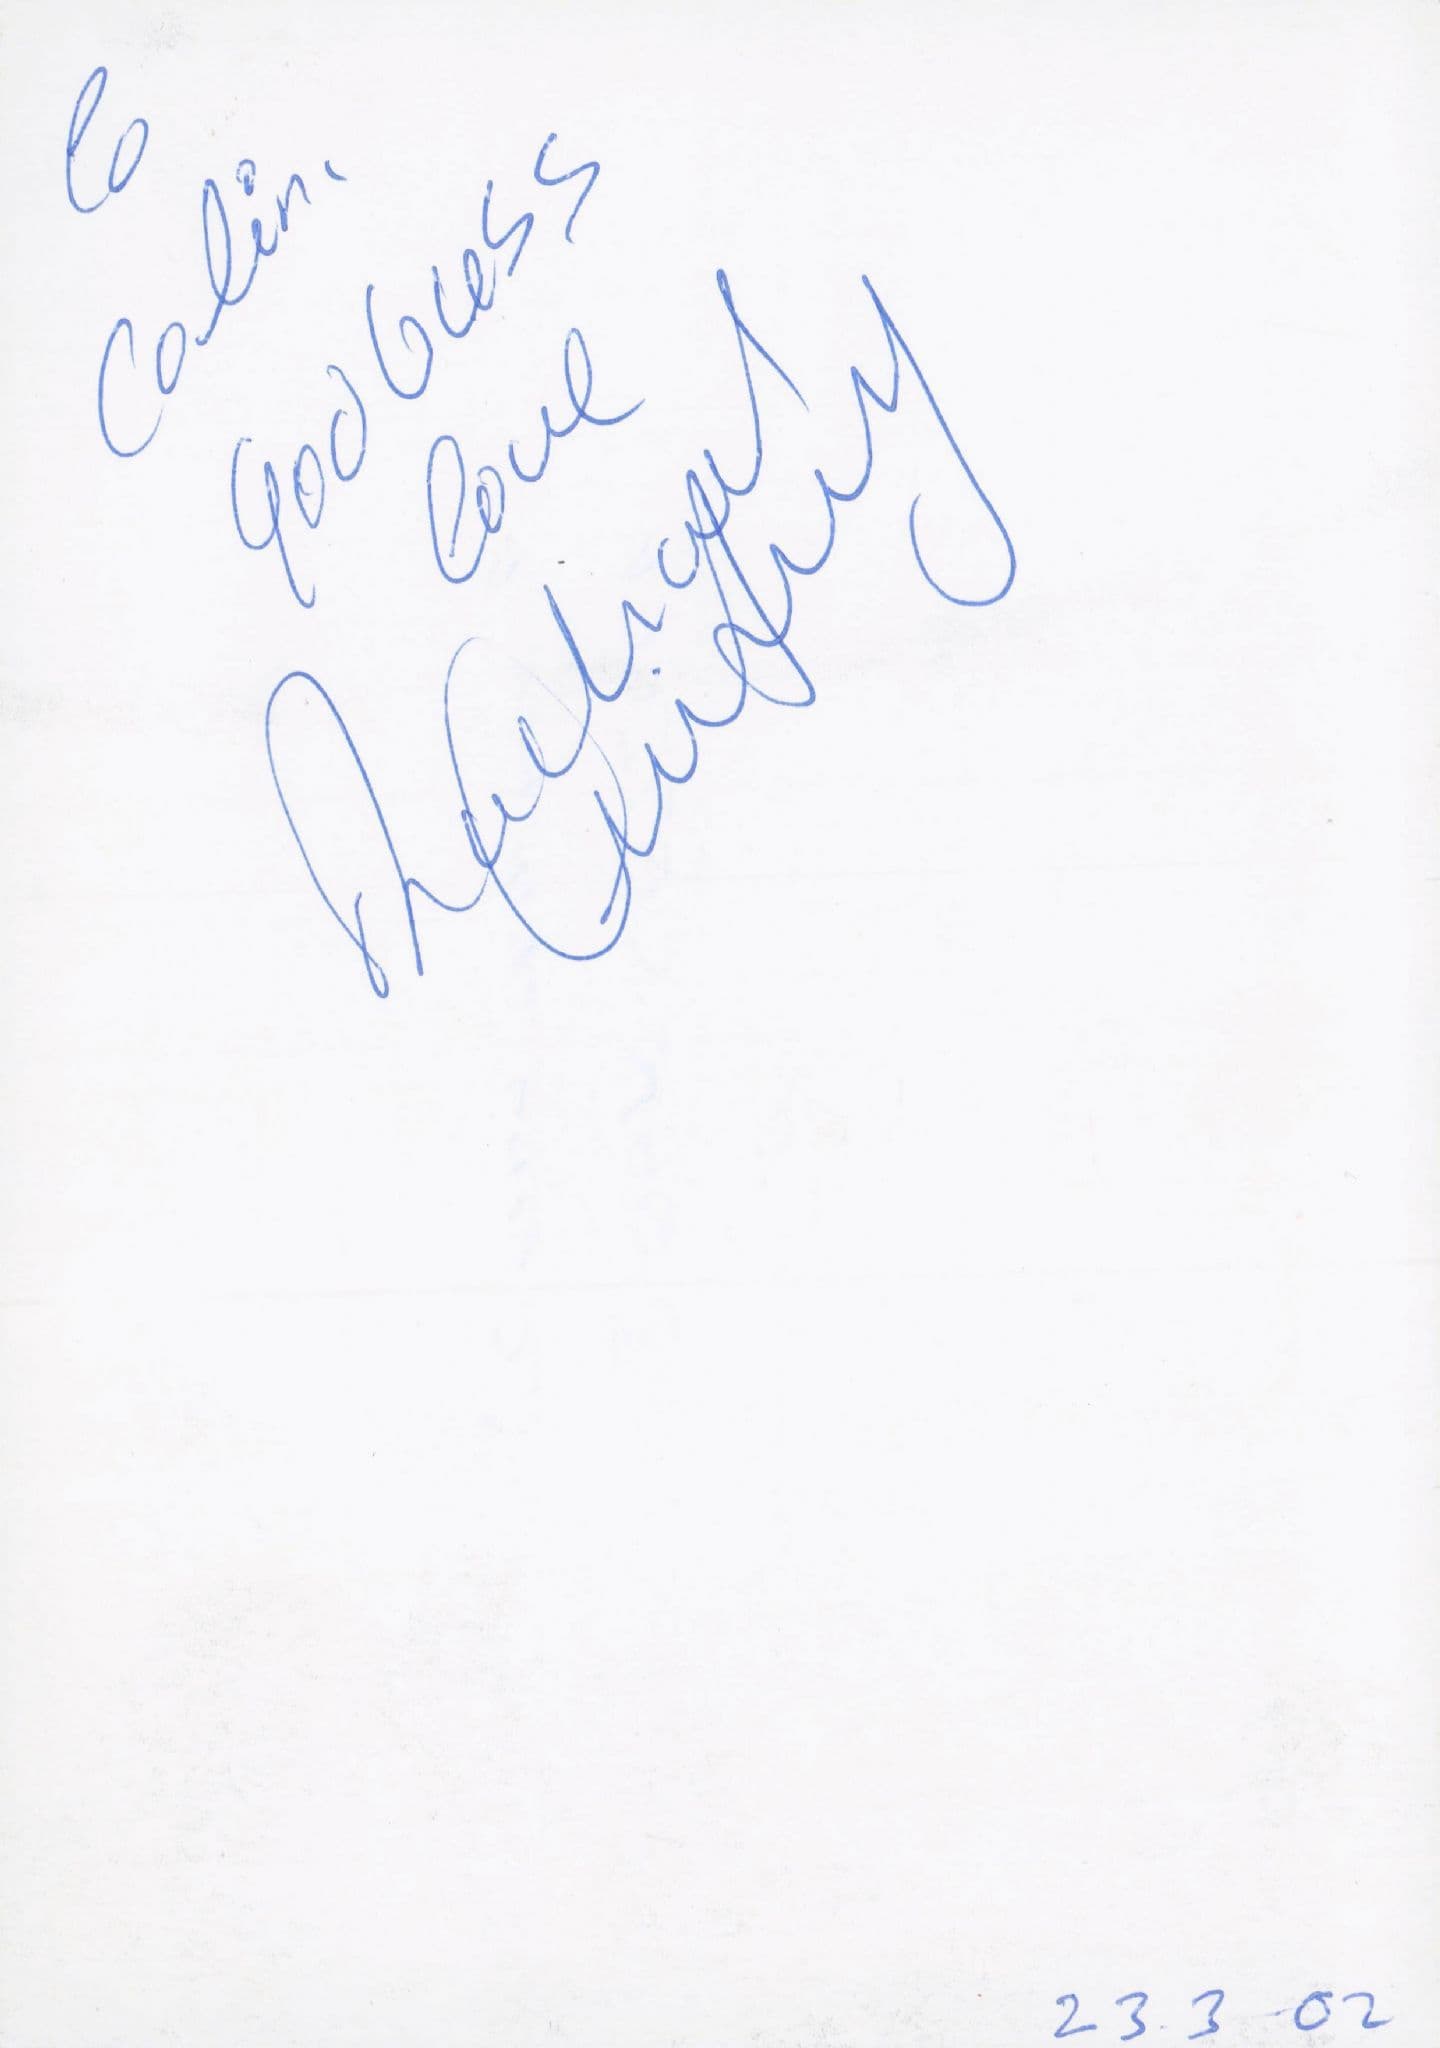 To
Colin.
God bless
love
23.3-02